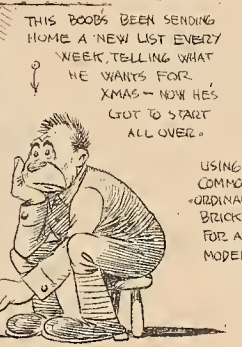 THIS BOOB'S BEEN SENDING
HOME A NEW LIST EVERY
WEEK, TELLING WHAT
HE WANTS FOR
XMAS – NOW HE'S
GOT TO START
ALL OVER.
USING
COMMO
ORDINA
BRICK
FOR A
MODE